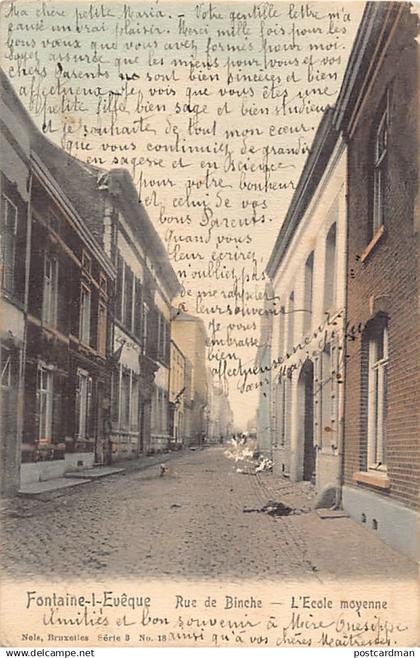 Ma chère petite Maria. - Votre gentille lettre m'a
causé un vrai plaisir. Merci mille fois pour les
bons vœux que vous avez formés pour moi.
assurée que les miens pour vous et vos
chers Parents ne sont bien sincères et bien
affectueux. Je vois que vous êtes une
petite fille bien sage et bien studieuse
et je souhaite de tout mon cœur
que vous continuiez de grandir
en sagesse et en science
pour votre bonheur
et celui de vos
bons Parents.
Quand vous
écrirez,
n'oubliez pas
de me rappeler
à leur souvenir
Je vous
embrasse
bien
affectueusement
Fontaine-l-Evêque Rue de Binche — L'Ecole moyenne
Amitiés et bon souvenir à Mère
Nels, Bruxelles Série 3 No. 18
ainsi qu'à vos chères Maîtresses.